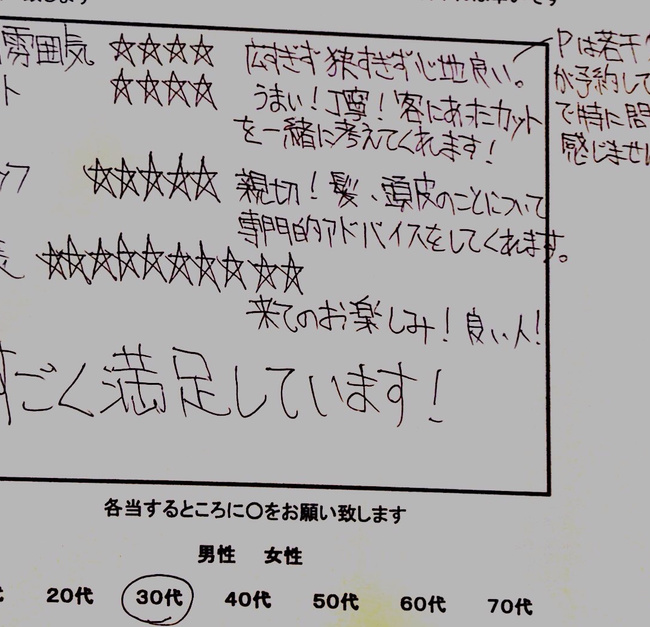 雰囲気 ☆☆☆☆ 広すぎず狭すぎず心地良い。
ト ☆☆☆☆ うまい！丁寧！客にあったカット
を一緒に考えてくれます！
☆☆☆☆☆ 親切！髪、頭皮のことについて
専門的アドバイスをしてくれます。
☆☆☆☆☆☆☆☆☆☆
来てのお楽しみ！良い人！
すごく満足しています！
Pは若干
が予約して
で特に問
感じませ
各当するところに〇をお願い致します
男性 女性
20代 30代 40代 50代 60代 70代